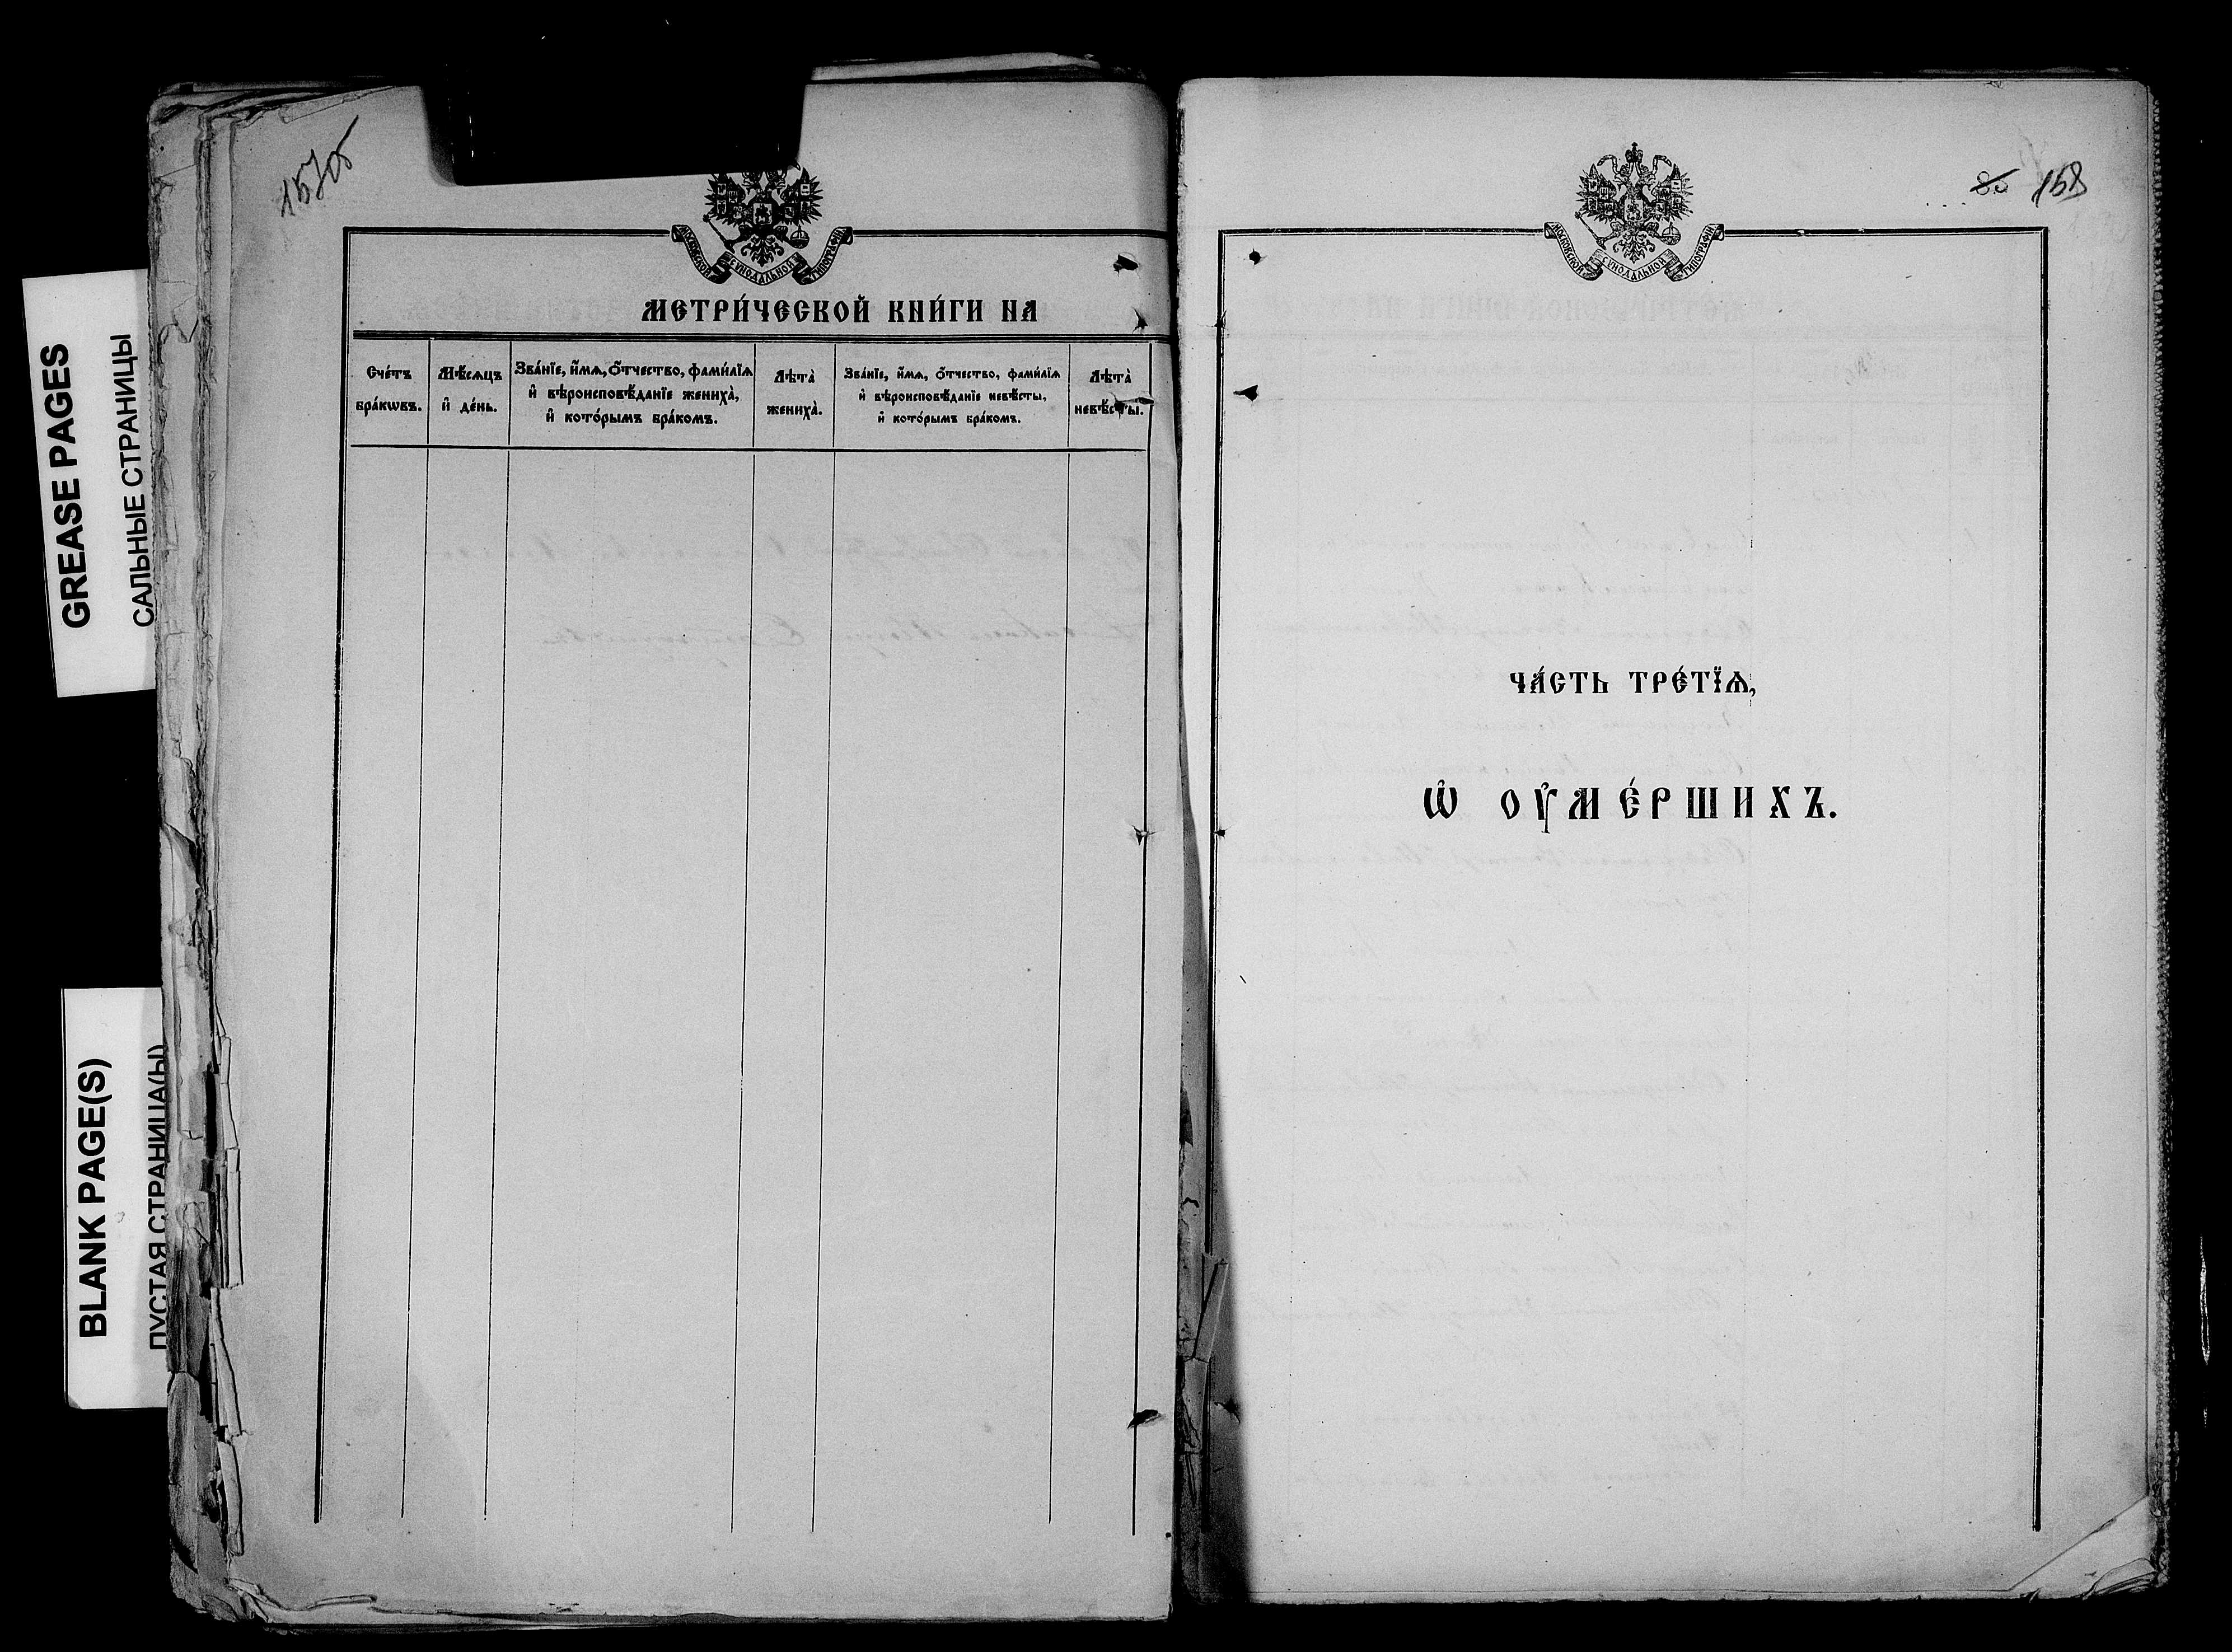 GREASE PAGES
САЛЬНЫЕ СТРАНИЦЫ
BLANK PAGE(S)
ПУСТАЯ СТРАНИЦА(Ы)
157об
МОСКОВСКОЙ СѴНОДАЛЬНОЙ ТИПОГРАФІИ
МЕТРИ́ЧЕСКОЙ КНИ́ГИ НА
Сче́тъ
бра́кѡвъ.
Мѣ́сѧцъ
и҆ де́нь.
Зва́нїе, и҆́мѧ, ѻ҆́тчество, фами́лїѧ
и҆ вѣроисповѣ́данїе жениха̀,
и҆ кото́рымъ бра́комъ.
Лѣта̀
жениха̀.
Зва́нїе, и҆́мѧ, ѻ҆́тчество, фами́лїѧ
и҆ вѣроисповѣ́данїе невѣ́сты,
и҆ кото́рымъ бра́комъ.
Лѣта̀
невѣ́сты.
158
МОСКОВСКОЙ СѴНОДАЛЬНОЙ ТИПОГРАФІИ
ЧА́СТЬ ТРЕ́ТЇѦ,
Ѡ҆ ОУ҆МЕ́РШИХЪ.